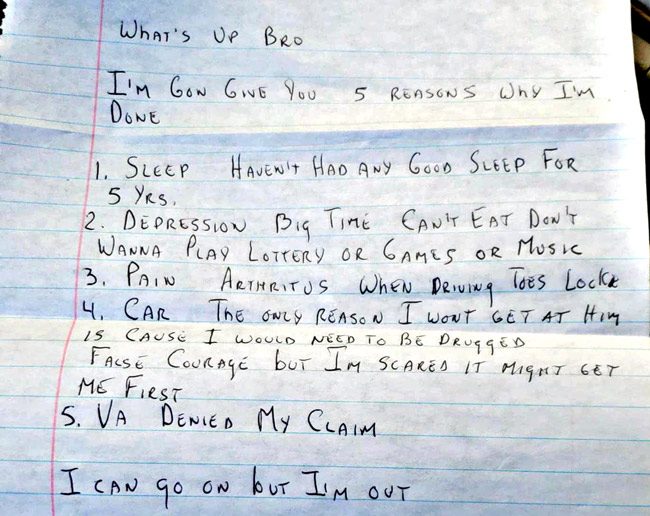 What's Up Bro
I'm Gon Give You 5 Reasons Why I'm
Done
1. Sleep Haven't Had Any Good Sleep For
5 Yrs.
2. Depression Big Time Can't Eat Don't
Wanna Play Lottery or Games or Music
3. Pain Arthritus When Driving Toes Locke
4. Car The only Reason I wont get at Him
is Cause I would need to Be Drugged
False Courage but I'm scared it might get
me First
5. Va Denied My Claim
I can go on but I'm out